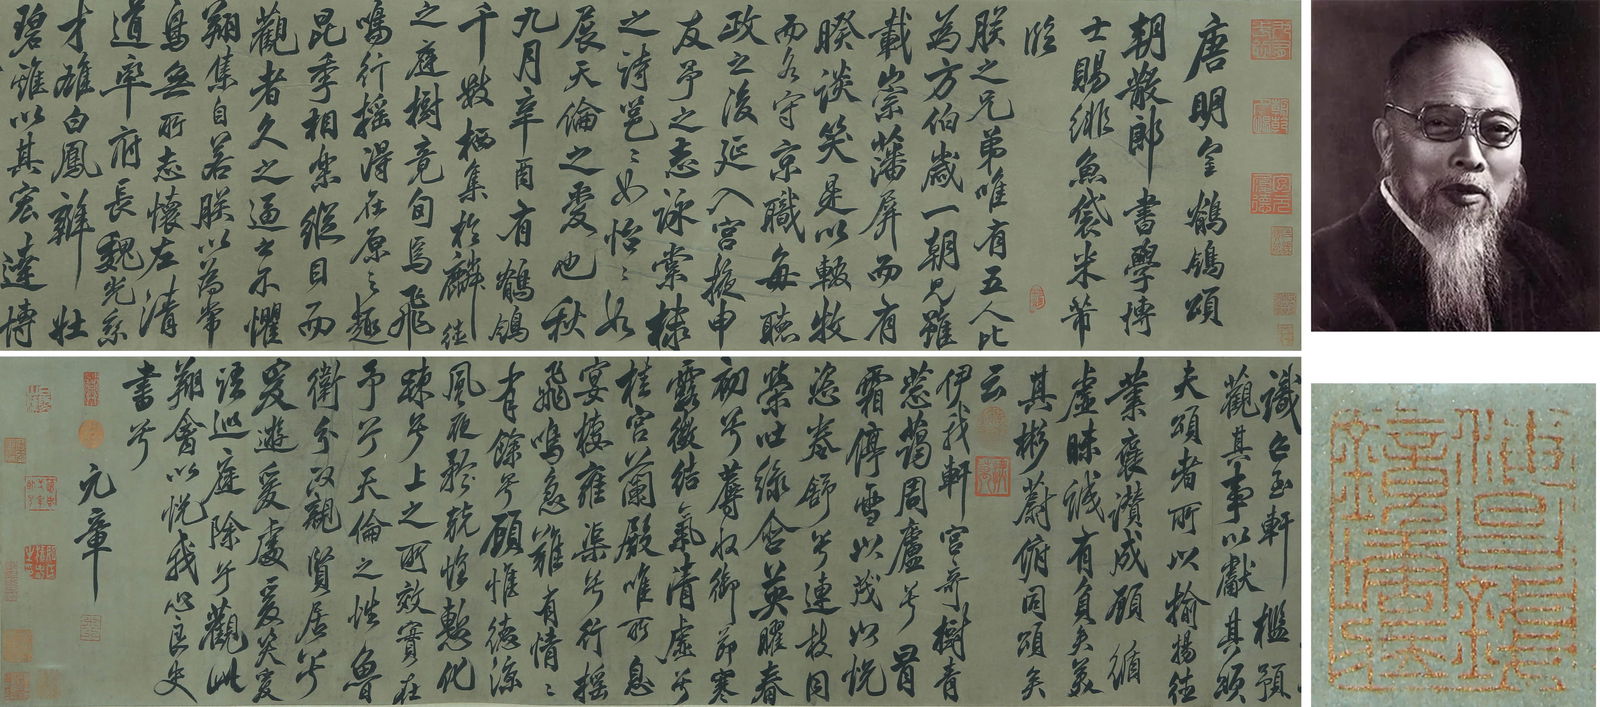 唐明皇鶺鴒頌
朝散郎書學博
士賜緋魚袋米芾
臨
朕之兄弟唯有五人比
為方伯歲一朝見雖
載崇藩屏而有
睽談笑是以輟牧
而各守京職每聽
政之後延入宮掖申
友于之志詠棠棣
之詩邕〻如怡〻如
展天倫之愛也秋
九月辛酉有鶺鴒
千數栖集於麟德
之庭樹竟旬焉飛
鳴行搖得在原之趣
昆季相樂縱目而
觀者久之逼之不懼
翔集自若朕以為常
鳥無所志懷左清
道率府長魏光乘
才雄白鳳辯壯
碧雞以其宏達博
識召至軒檻預
觀其事以獻其頌
夫頌者所以揄揚德
業褒讚成顧循
虛昧誠有負矣美
其彬蔚俯同頌矣
云
伊我軒宮奇樹青
葱藹周廬兮冒
霜停雪以茂以悅
恣卷舒兮連枝同
榮吐綠含英曜春
初兮蓐收御節寒
露微結氣清虛兮
桂宮蘭殿唯所息
宴棲雍渠兮行搖
飛鳴急難有情〻
有餘兮顧惟德涼
夙夜兢惶慙化
踈兮上之所效實在
予兮天倫之性魯
衛分政親賢居兮
爰遊爰處爰笑爰
語巡庭除兮觀此
翔會以悅我心良史
書兮
元章